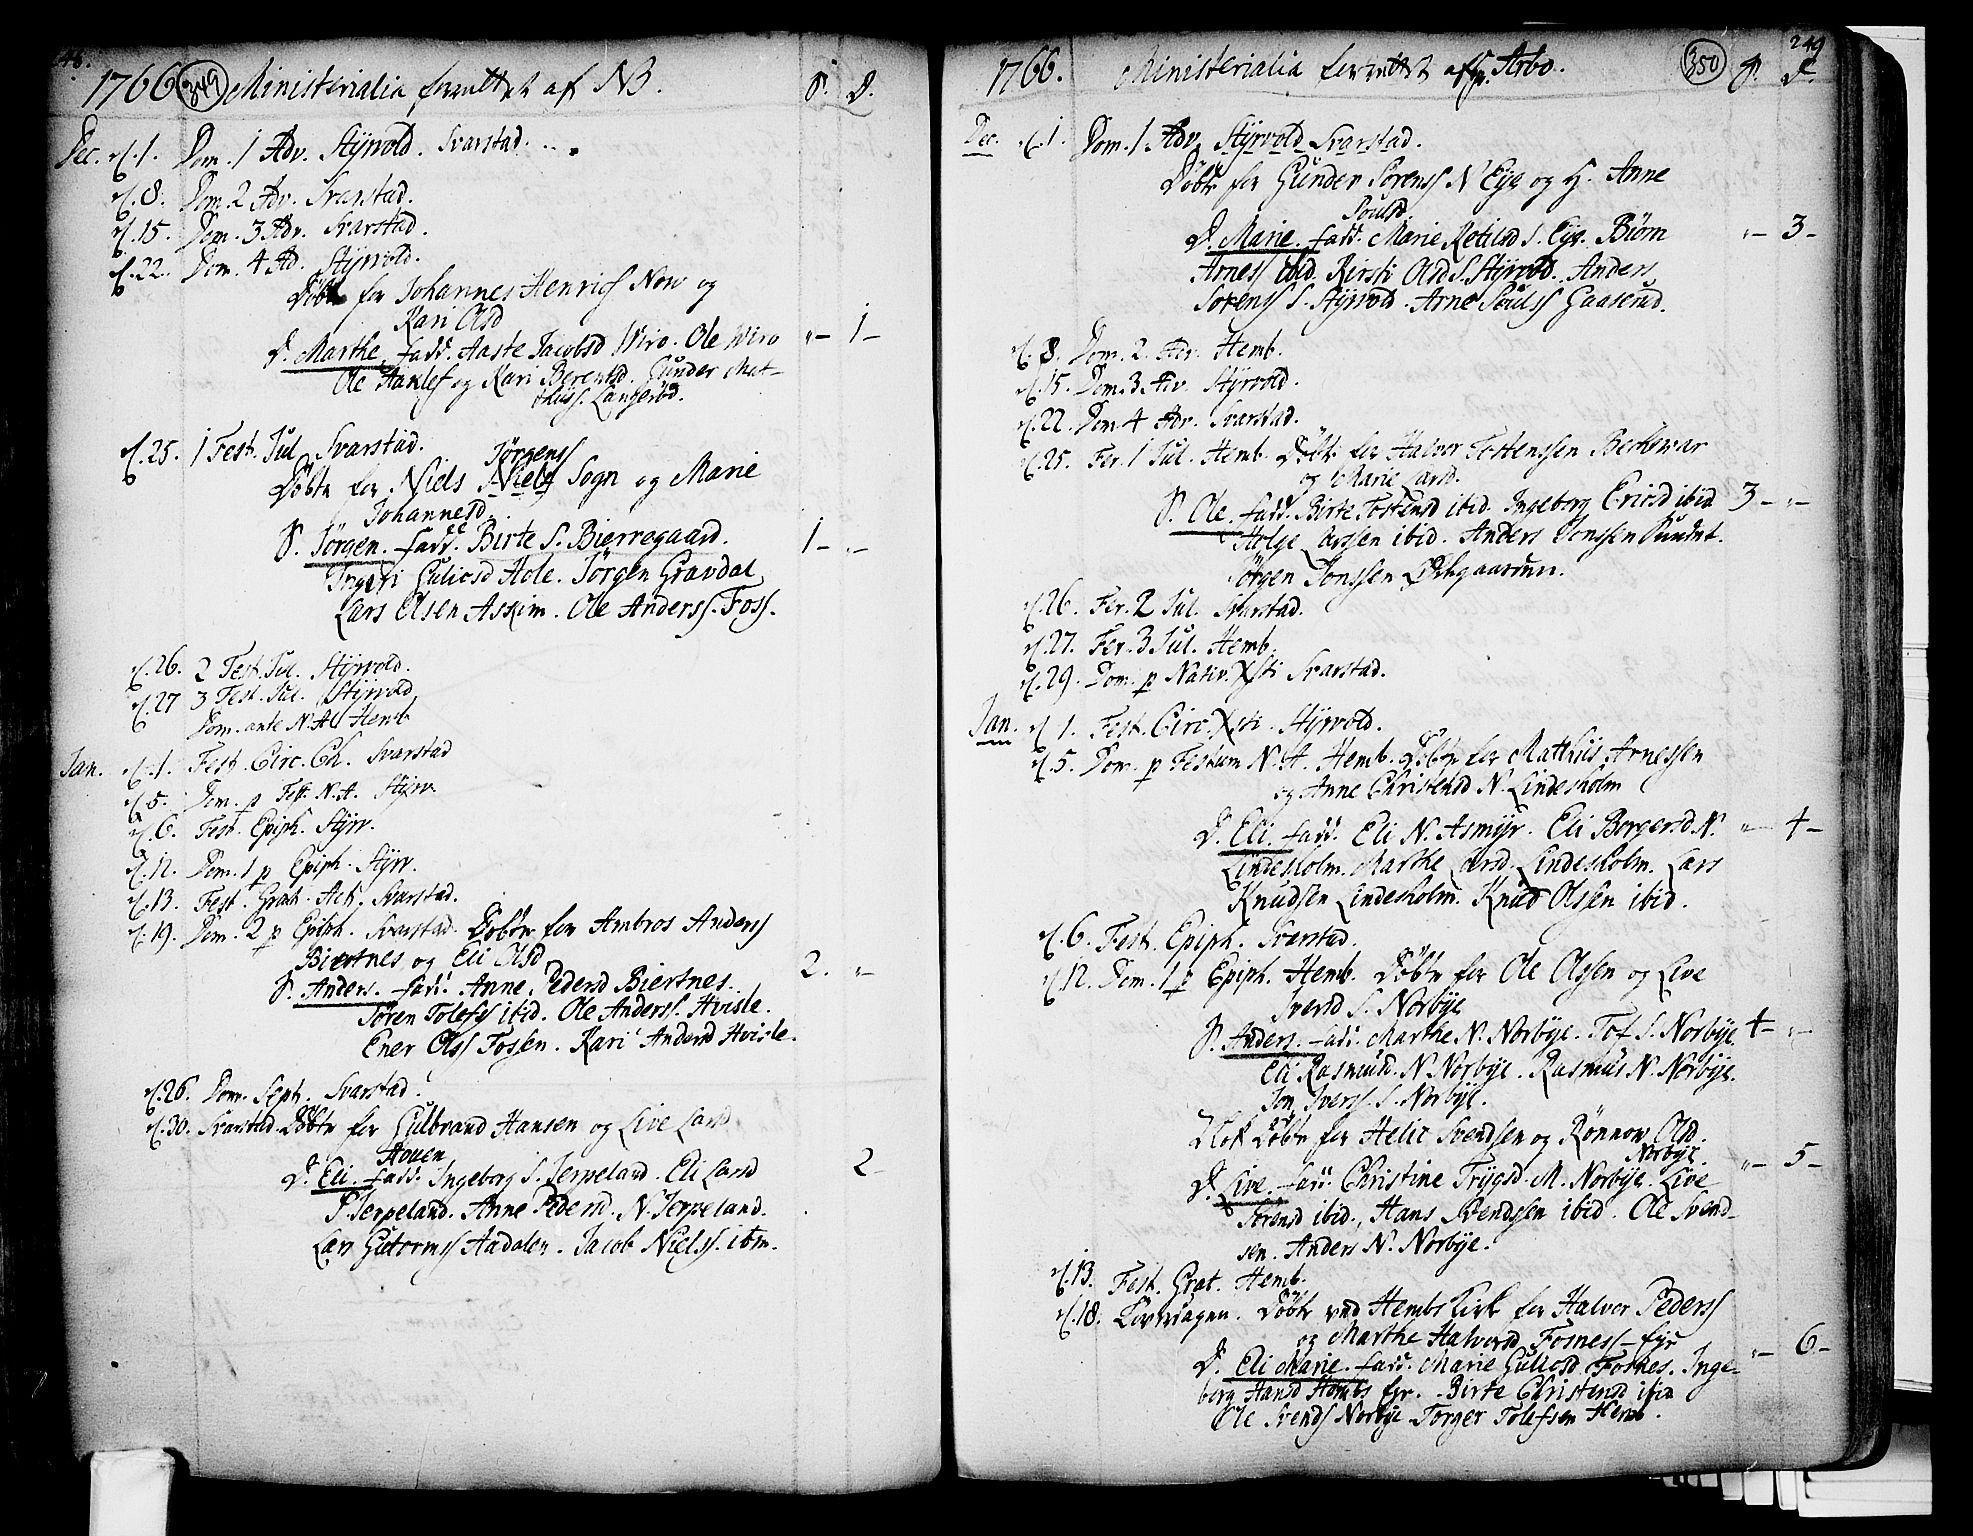 248.
1766 349 Ministerialia forrettet af NB. S. D.
Dec. d. 1. Dom. 1 Adv. Styrvold. Svarstad.
d. 8. Dom. 2 Adv. Svarstad.
d. 15. Dom. 3 Adv. Svarstad.
d. 22. Dom. 4 Ad. Styrvold.
Döbt for Johannes Henrichs Now og
Kari Olsd
D. Marthe. fadd. Aaste Jacobsd Wiro. Ole Wiro „– 1–
Ole Aaslef og Kari Berentsd. Gunder Mat-
thiss. Langeröd.
d. 25. 1 Fest. Jul Svarstad.
Jörgenss
Döbte for Niels Niels Sogn og Marie
Johannesd.
S. Jörgen. fadd. Birte S. Bierregaard. 1– „–
Ingeri Guliosd Hole. Jörgen Gravdal
Lars Olsen Askim. Ole Anderss. Foss.
d. 26. 2 Fest. Jul. Styrvold.
d. 27 3 Fest. Jul. Styrvold
Dom. ante N. A. Hemb
Jan. d. 1. Fest. Circ. Ch. Svarstad
d. 5. Dom. p Fest. N. A. Styrv.
d. 6. Fest. Epiph. Styrv.
d. 12. Dom. 1 p Epiph. Styrv.
d. 13. Fest. Grat. Act. Svarstad.
d. 19. Dom. 2 p Epiph. Svarstad. Döbte for Ambros Anderss
Biertnes og Eli Olsd
S. Anders. fadd. Anne Pedersd Biertnes. 2. „–
Sören Tolefss ibid. Ole Anderss. Hvisle.
Ener Olss Fossen. Kari Andersd Hvisle.
d. 26. Dom. Sept. Svarstad.
d. 30. Svarstad. Döbte for Gulbrand Hansen og Live Larsd
Houen
D. Eli. fadd. Ingeborg S. Jerpeland. Eli Larsd 2–
S. Jerpeland. Anne Pedersd. N. Jerpeland.
Lars Gutormss Aadalen. Jacob Nielss. ibm.
249
1766. Ministerialia forrettet af Hr. Arbo. 350 S. D.
Dec. d. 1. Dom. 1 Adv. Styrvold Svarstad.
Döbte for Gunder Sörenss N Eye og H. Anne
Poulsd
D. Marie. fadd. Marie Ketilsd S. Eye. Biörn „– 3–
Arness ibid. Kirsti Olsd S. Styrvold. Anders
Sörenss S. Styrvold. Arne Poulss Gaaserud.
d. 8. Dom. 2. Adv. Hemb.
d. 15. Dom. 3 Adv. Styrvold.
d. 22. Dom 4 Adv. Svarstad.
d. 25. Fer. 1 Jul. Hemb. Döbte for Halvor Tostenssen Berkevar
og Marie Larsd.
S. Ole. fadd. Birte Tostensd ibid. Ingeborg Ericsd ibid 3– „–
Helge Larssen ibid. Anders Jonssen
Jörgen Jonssen
d. 26. Fer. 2 Jul. Svarstad.
d. 27. Fer. 3 Jul. Hemb.
d. 29. Dom. p Nativ. Xsti Svarstad.
Jan. d 1. Fest. Circ. Xsti. Styrvold.
d. 5. Dom. p Festum N. A. Hemb. Döbte for Matthis Arnessen
og Anne Christensd N. Lindesholm
D. Eli. fadd. Eli N. Asmyr. Eli Borgersd N. „– 4–
Lindesholm. Marthe Larsd. Lindesholm. Lars
Knudsen Lindesholm. Knud Olssen ibid.
d. 6. Fest. Epiph. Svarstad.
d. 12. Dom. 1 p Epiph. Hemb. Döbte for Ole Olssen og Live
Iversd S. Norbye
S. Anders. fadd. Marthe N. Norbye. Tof S. Norbye. 4– „–
Eli Rasmusd. N. Norbye. Rasmus N. Norbye.
Jon Iverss. S. Norbye.
Nok Döbte for Helie Svendsen og Rönnow Olsd.
Norbye
D. Live. fadd. Christine Trygsd. M. Norbye. Live „– 5–
Sörensd ibid., Hans Svendssen ibid. Ole Svend-
sen. Anders N. Norbye.
d. 13. Fest. Grat. Hemb.
d. 18. Löverdagen. Döbte ved Hembs Kirk for Halvor Pederss
og Marthe Halvorsd Fosness – eje
D. Eli Marie. fadd. Marie Guliosd Fosnes. Inge- „– 6–
borg Hansd Hembs eje. Birte Christensd ibid
Ole Svends Norbye Torger Tolefsen Hemb.